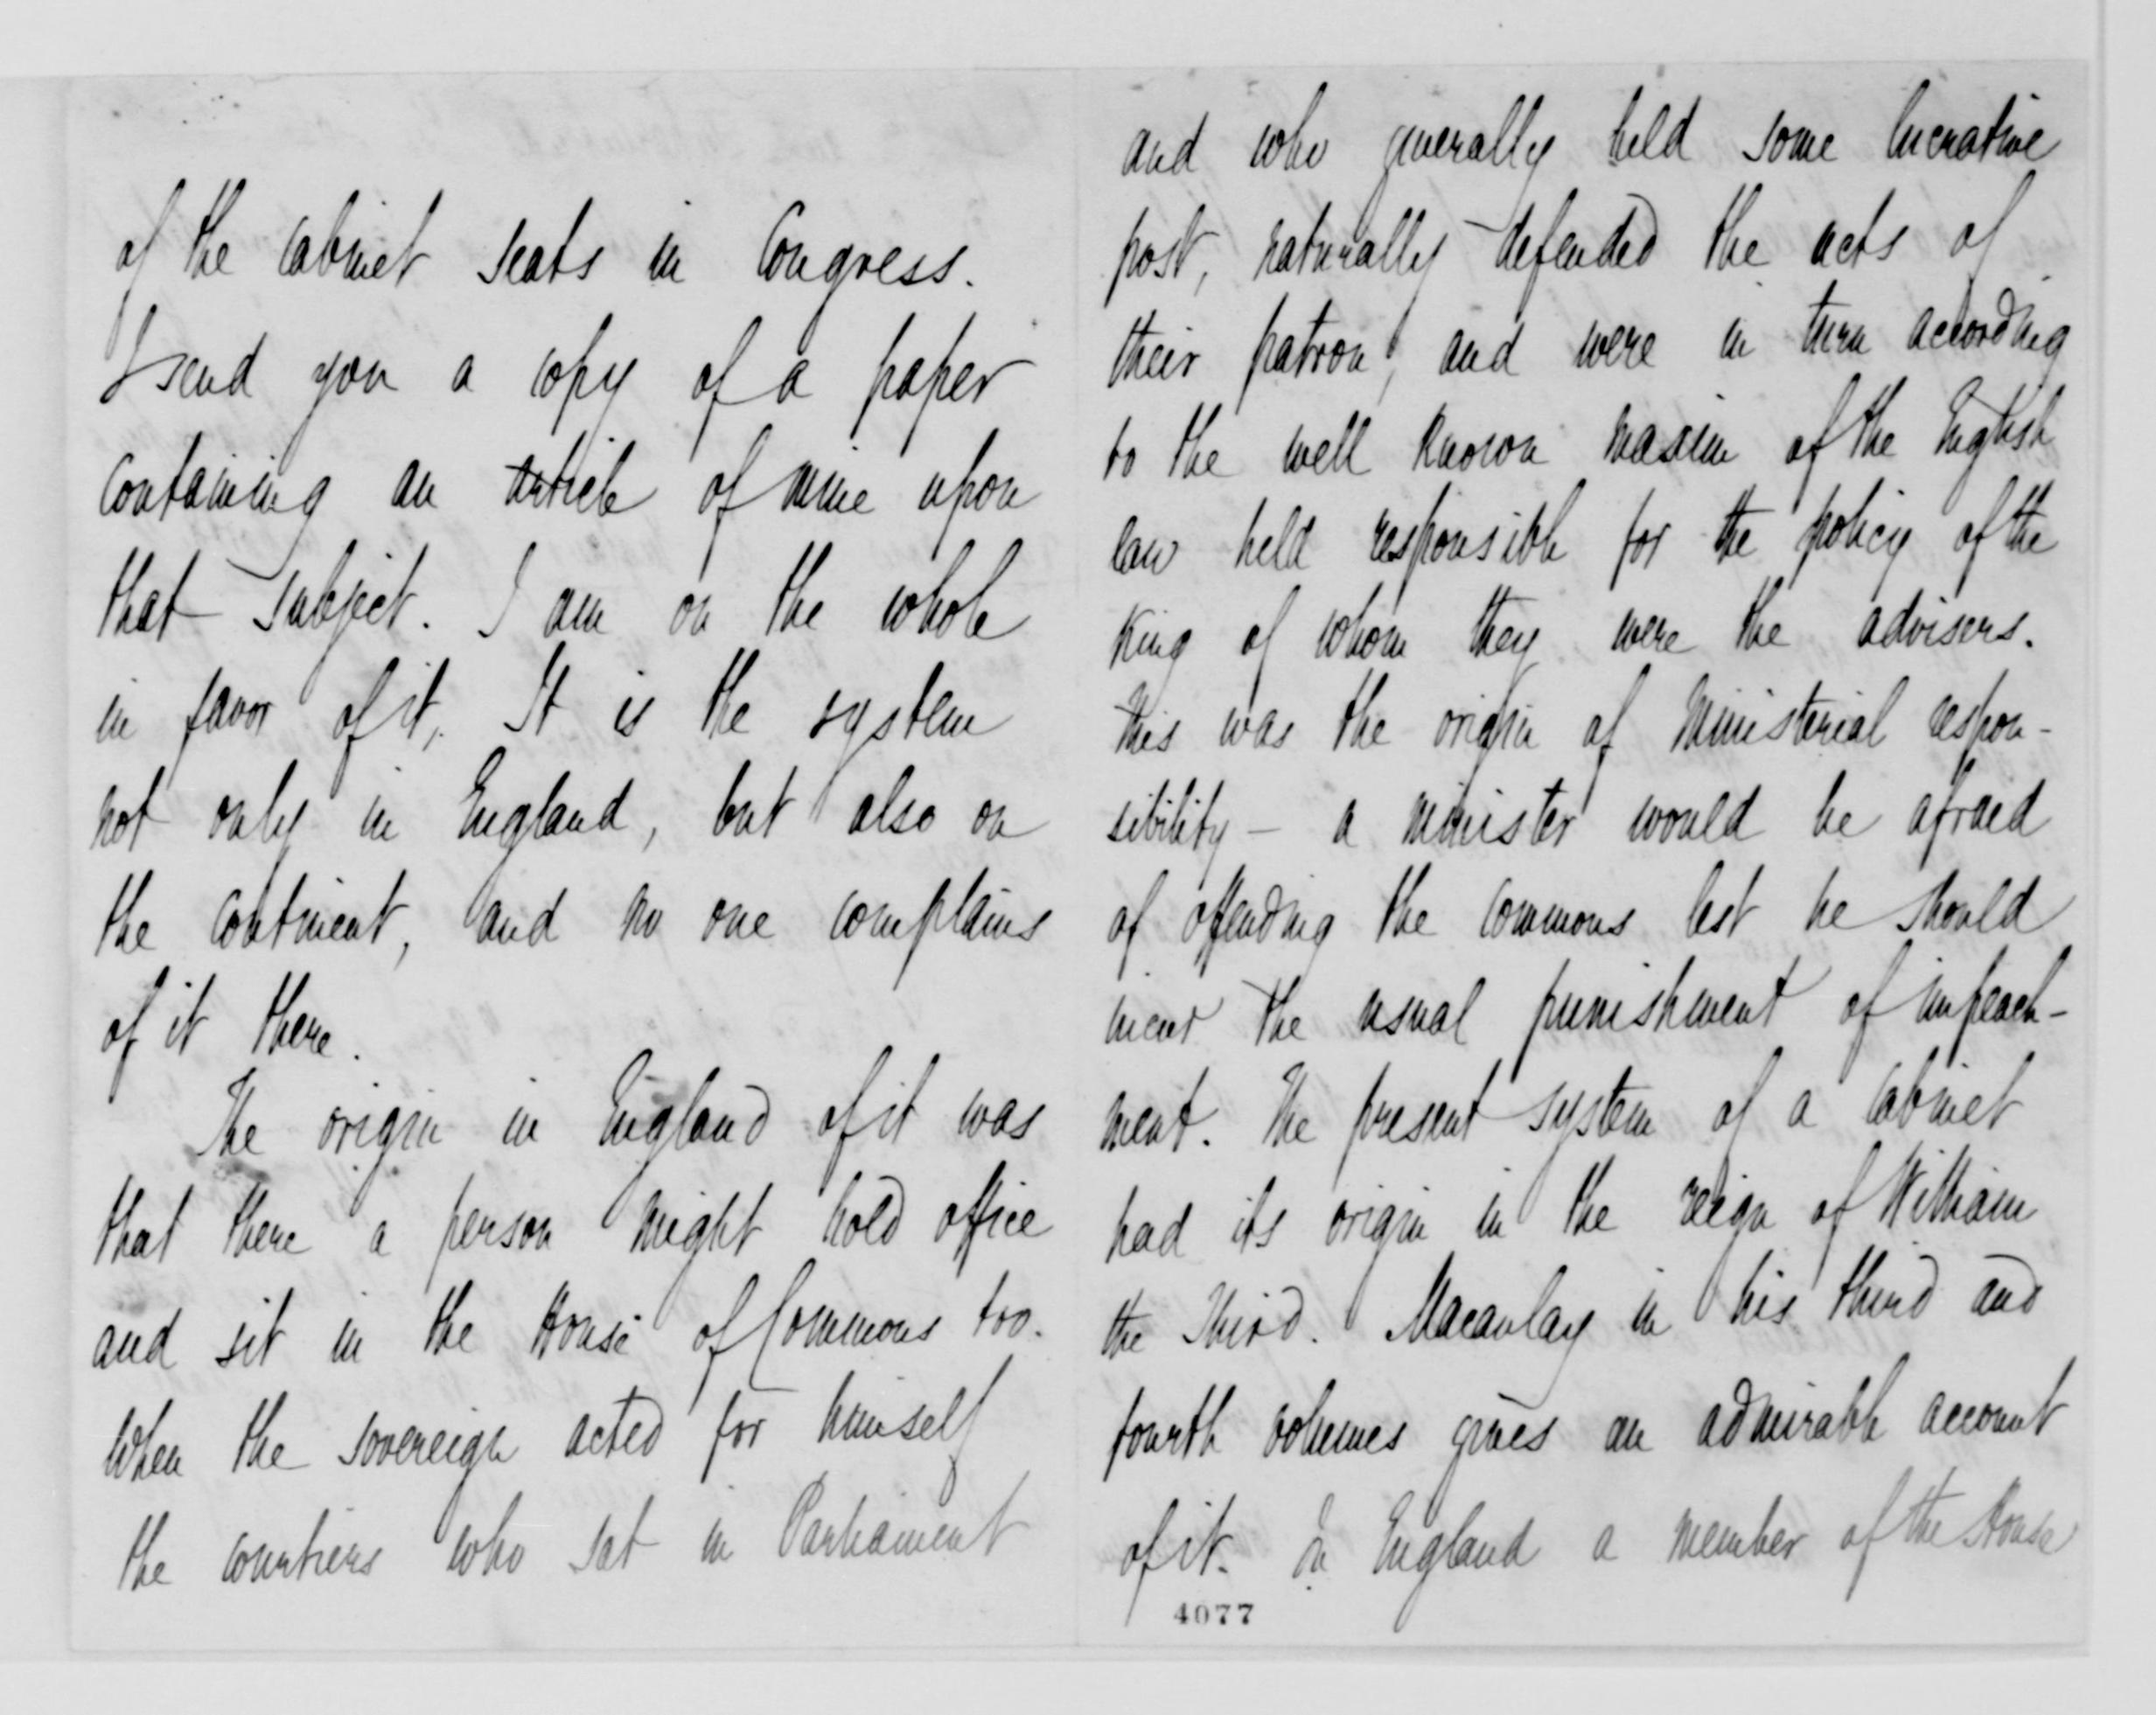 of the cabinet seats in Congress.
I send you a copy of a paper
containing an article of mine upon
that subject. I am on the whole
in favor of it. It is the system
not only in England, but also on
the continent, and no one complains
of it there.
The origin in England of it was
that there a person might hold office
and sit in the House of Commons too.
When the sovereign acted for himself
the courtiers who sat in Parliament
and who generally held some lucrative
post, naturally defended the acts of
their patron, and were in turn according
to the well known maxim of the English
law held responsible for the policy of the
King of whom they were the advisers.
This was the origin of ministerial respon-
sibility - a minister would be afraid
of offending the commons lest he should
incur the usual punishment of impeach-
ment. The present system of a cabinet
had its origin in the reign of William
the Third. Macaulay in his third and
fourth volumes gives an admirable account
of it. In England a member of the House
4077